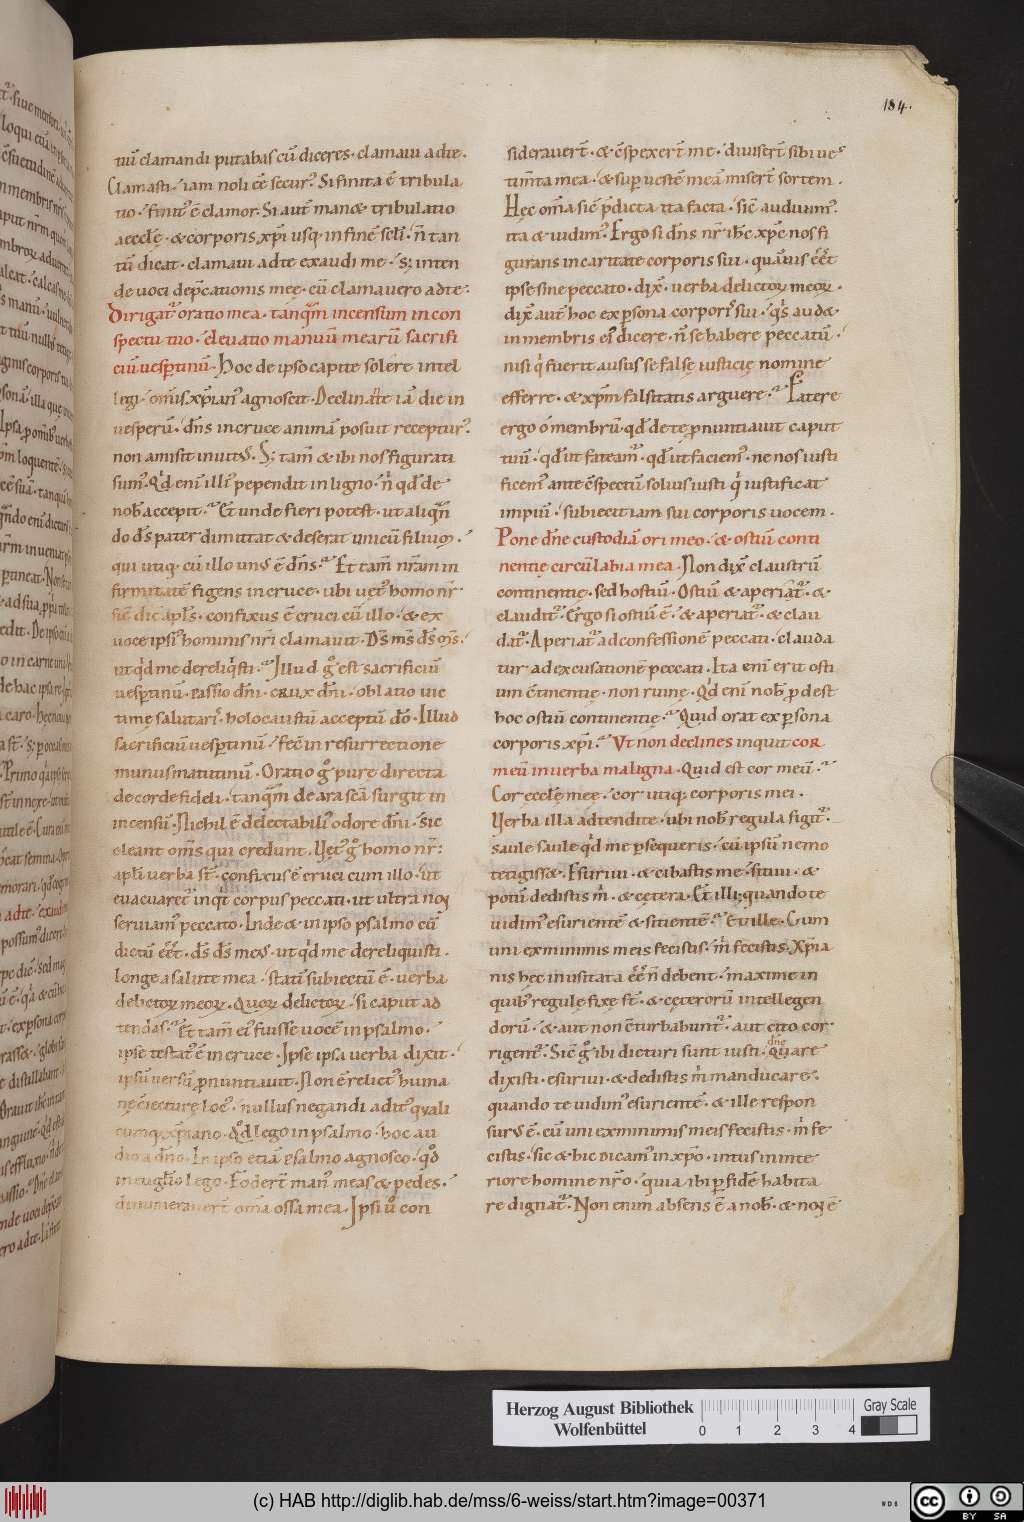 184.
tiū clamandi putabas cū diceres · clamavi ad te ·
Clamasti · iam noli ēē secur᷒ · Si finita ē tribula
tio · finit᷒ ē clamor · Si aut̄ manet tribulatio
aecclę · & corporis xp̄i usq; in finē sclī · n̄ tan
tū dicat · clamavi ad te exaudi me · S; inten
de voci dep̄cationis meę · cū clamavero ad te ·
Dirigat᷑ oratio mea · tanquā incensum in con
spectu tuo · elevatio manuū mearū sacrifi
ciū vesp̱tinū · Hoc de ipso capite solere intel
legi · om̄is xp̄ian᷒ agnoscit · Declinante iā die in
vesperū · dn̄s in cruce animā posuit receptur᷒ ·
non amisit invit᷒ · S; tam̄ & ibi nos figurati
sum᷒ · Qd̄ enī illi᷒ pependit in ligno · n̄ qd̄ de
nob̄ accepit · Et unde fieri potest · ut aliqn̄
do d̄s pater dimittat & deserat unicū filium ·
qui utiq; cū illo un᷒ ē dn̄s · Et tam̄ nr̄am in
firmitatē figens in cruce · ubi vet᷒ homo nr̄
sic̄ dic̄ apl̄s · confixus ē cruci cū illo · & ex
voce ipsi᷒ hominis nr̄i clamavit · D̄s m̄s d̄s m̄s ·
ut qd me dereliqisti · Illud g̊ est sacrificiū
vesp̱tinū · passio dn̄i · crux dn̄i · oblatio vic
timę salutar᷒ · holocaustū acceptū dō · Illud
sacrificiū vesp̱tinū · fec̄ in resurrectione
munus matutinū · Oratio g̊ pure directa
de corde fideli · tanquā de ara sc̄a surgit in
incensū · Nichil ē delectabili᷒ odore dn̄i · sic
oleant om̄s qui credunt · Vet᷒ g̊ homo nr̄ :
apl̄i verba st̄ · confixus ē cruci cum illo · ut
evacuaret᷑ inqt corpus peccati · ut ultra non
serviam᷒ peccato · Inde & in ipso psalmo cū
dictū ēēt · d̄s d̄s me᷒ · ut qd me dereliquisti ·
longe a salute mea · statī subiectū ē · verba
delictoꝝ meoꝝ · Quoꝝ delictoꝝ · si caput ad
tendas · Et tam̄ ei᷒ fuisse vocē in psalmo ·
ipse testat᷒ ē in cruce · Ipse ipsa verba dixit ·
ipsū versū pronuntiavit · Non ē relict᷒ huma
nę c̄iecturę loc᷒ · nullus negandi adit᷒ quali
cumq; xp̄iano · Qd̄ lego in psalmo · hoc au
dio a dn̄o · In ipso etiā psalmo agnosco · qd̄
in evgl̄io lego · Foder̄t man᷒ meas & pedes ·
dinumeraver̄t om̄a ossa mea · Ipsi v̊ con
sideraver̄t · & c̄spexer̄t me · diviser̄t sibi ves
tim̄ta mea · & sup̱ vestē meā miser̄t sortem ·
Hęc om̄a sic̄ p̄dicta ita facta · sic̄ audivim᷒ ·
ita & vidim᷒ · Ergo si dn̄s nr̄ ih̄c xp̄c nos fi
gurans in caritate corporis sui · quāvis ēēt
ipse sine peccato · dix̄ · verba delictoꝝ meoꝝ ·
dix̄ aut̄ hoc ex p̱sona corporis sui · qis audet
in membris ei᷒ dicere · n̄ se habere peccatū ·
nisi qi fuerit ausus se falsę iusticię nomine
efferre · & xp̄m falsitatis arguere · Fatere
ergo o membrū · qd̄ de te pronuntiavit caput
tuū · qd̄ ut fateam᷑ · qd̄ ut faciem᷒ · ne nos iusti
ficem᷒ ante c̄spectū solius iusti qi iustificat
impiū · subiecit iam sui corporis vocem ·
Pone dn̄e custodiā ori meo · & ostiū conti
nentię circū labia mea · Non dix̄ claustrū
continentię · sed hostiū · Ostiū & aperiat᷑ · &
claudit᷑ · Ergo si ostiū ē · & aperiat᷑ · & clau
dat᷑ · Aperiat᷑ ad confessionē peccati · clauda
tur ad excusationē peccati · Ita enī erit osti
um c̄tinentię · non ruinę · Qd̄ enī nob̄ prodest
hoc ostiū continentię · Quid orat ex p̱sona
corporis xp̄i · Ut non declines inquit cor
meū in verba maligna · Quid est cor meū ·
Cor ecclę meę · cor utiq; corporis mei ·
Verba illa adtendite · ubi nob̄ regula figit᷑ ·
saule saule qd me p̱sequeris · cū ipsū nemo
tetigisset · Esurivi · & cibastis me · sitivi · &
potū dedistis m̄ · & cętera · Et illi; quando te
vidim᷒ esurientē & sitientē · Et ille · Cum
uni ex minimis meis fecistis · m̄ fecistis · Xp̄ia
nis hęc inusitata ēē n̄ debent · maxime in
quib᷒ regulę fixę st̄ · & cęterorū intellegen
dorū · & aut non c̄turbabunt᷑ · aut cito cor
rigent᷑ · Sic̄ g̊ ibi dicturi sunt iusti · dn̄e quare
dixisti · esurivi · & dedistis m̄ manducare ·
quando te vidim᷒ esurientē · & ille respon
surus ē · cū uni ex minimis meis fecistis · m̄ fe
cistis · sic & hic dicam᷒ in xp̄o · intus in inte
riore homine nr̄o · quia ibi p̱ fidē habita
re dignat᷑ · Non enim absens ē a nob̄ · & non ē
Herzog August Bibliothek
Wolfenbüttel
0 1 2 3 4
Gray Scale
(c) HAB http://diglib.hab.de/mss/6-weiss/start.htm?image=00371
WDB
cc
BY SA